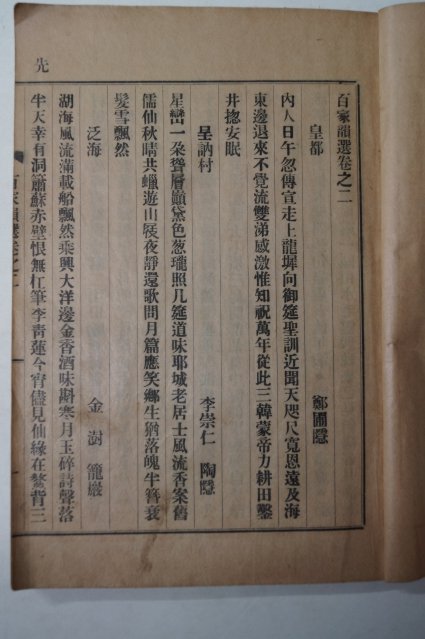 百家韻選卷之二
皇都 鄭圃隱
內人日午忽傳宣走上龍墀向御筵聖訓近聞天咫尺寬恩遠及海
東邊退來不覺流雙涕感激惟知祝萬年從此三韓蒙帝力耕田鑿
井揔安眠
呈訥村 李崇仁 陶隱
星巒一朶聳層巓黛色葱瓏照几筵道味耶城老居士風流香案舊
儒仙秋晴共蠟遊山屐夜靜還歌問月篇應笑鄕生猶落魄半簪衰
髮雪飄然
泛海 金澍 籠巖
湖海風流滿載船飄然乘興大洋邊金香酒味斟寒月玉碎詩聲落
半天幸有洞簫蘇赤壁恨無杠筆李靑蓮今宵儘見仙緣在鰲背三
先
百家韻選卷之二